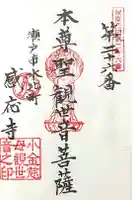 第二十六番
本尊聖観世音菩薩
瀬戸市水北町
感応寺
小金銘
母観世
音之印